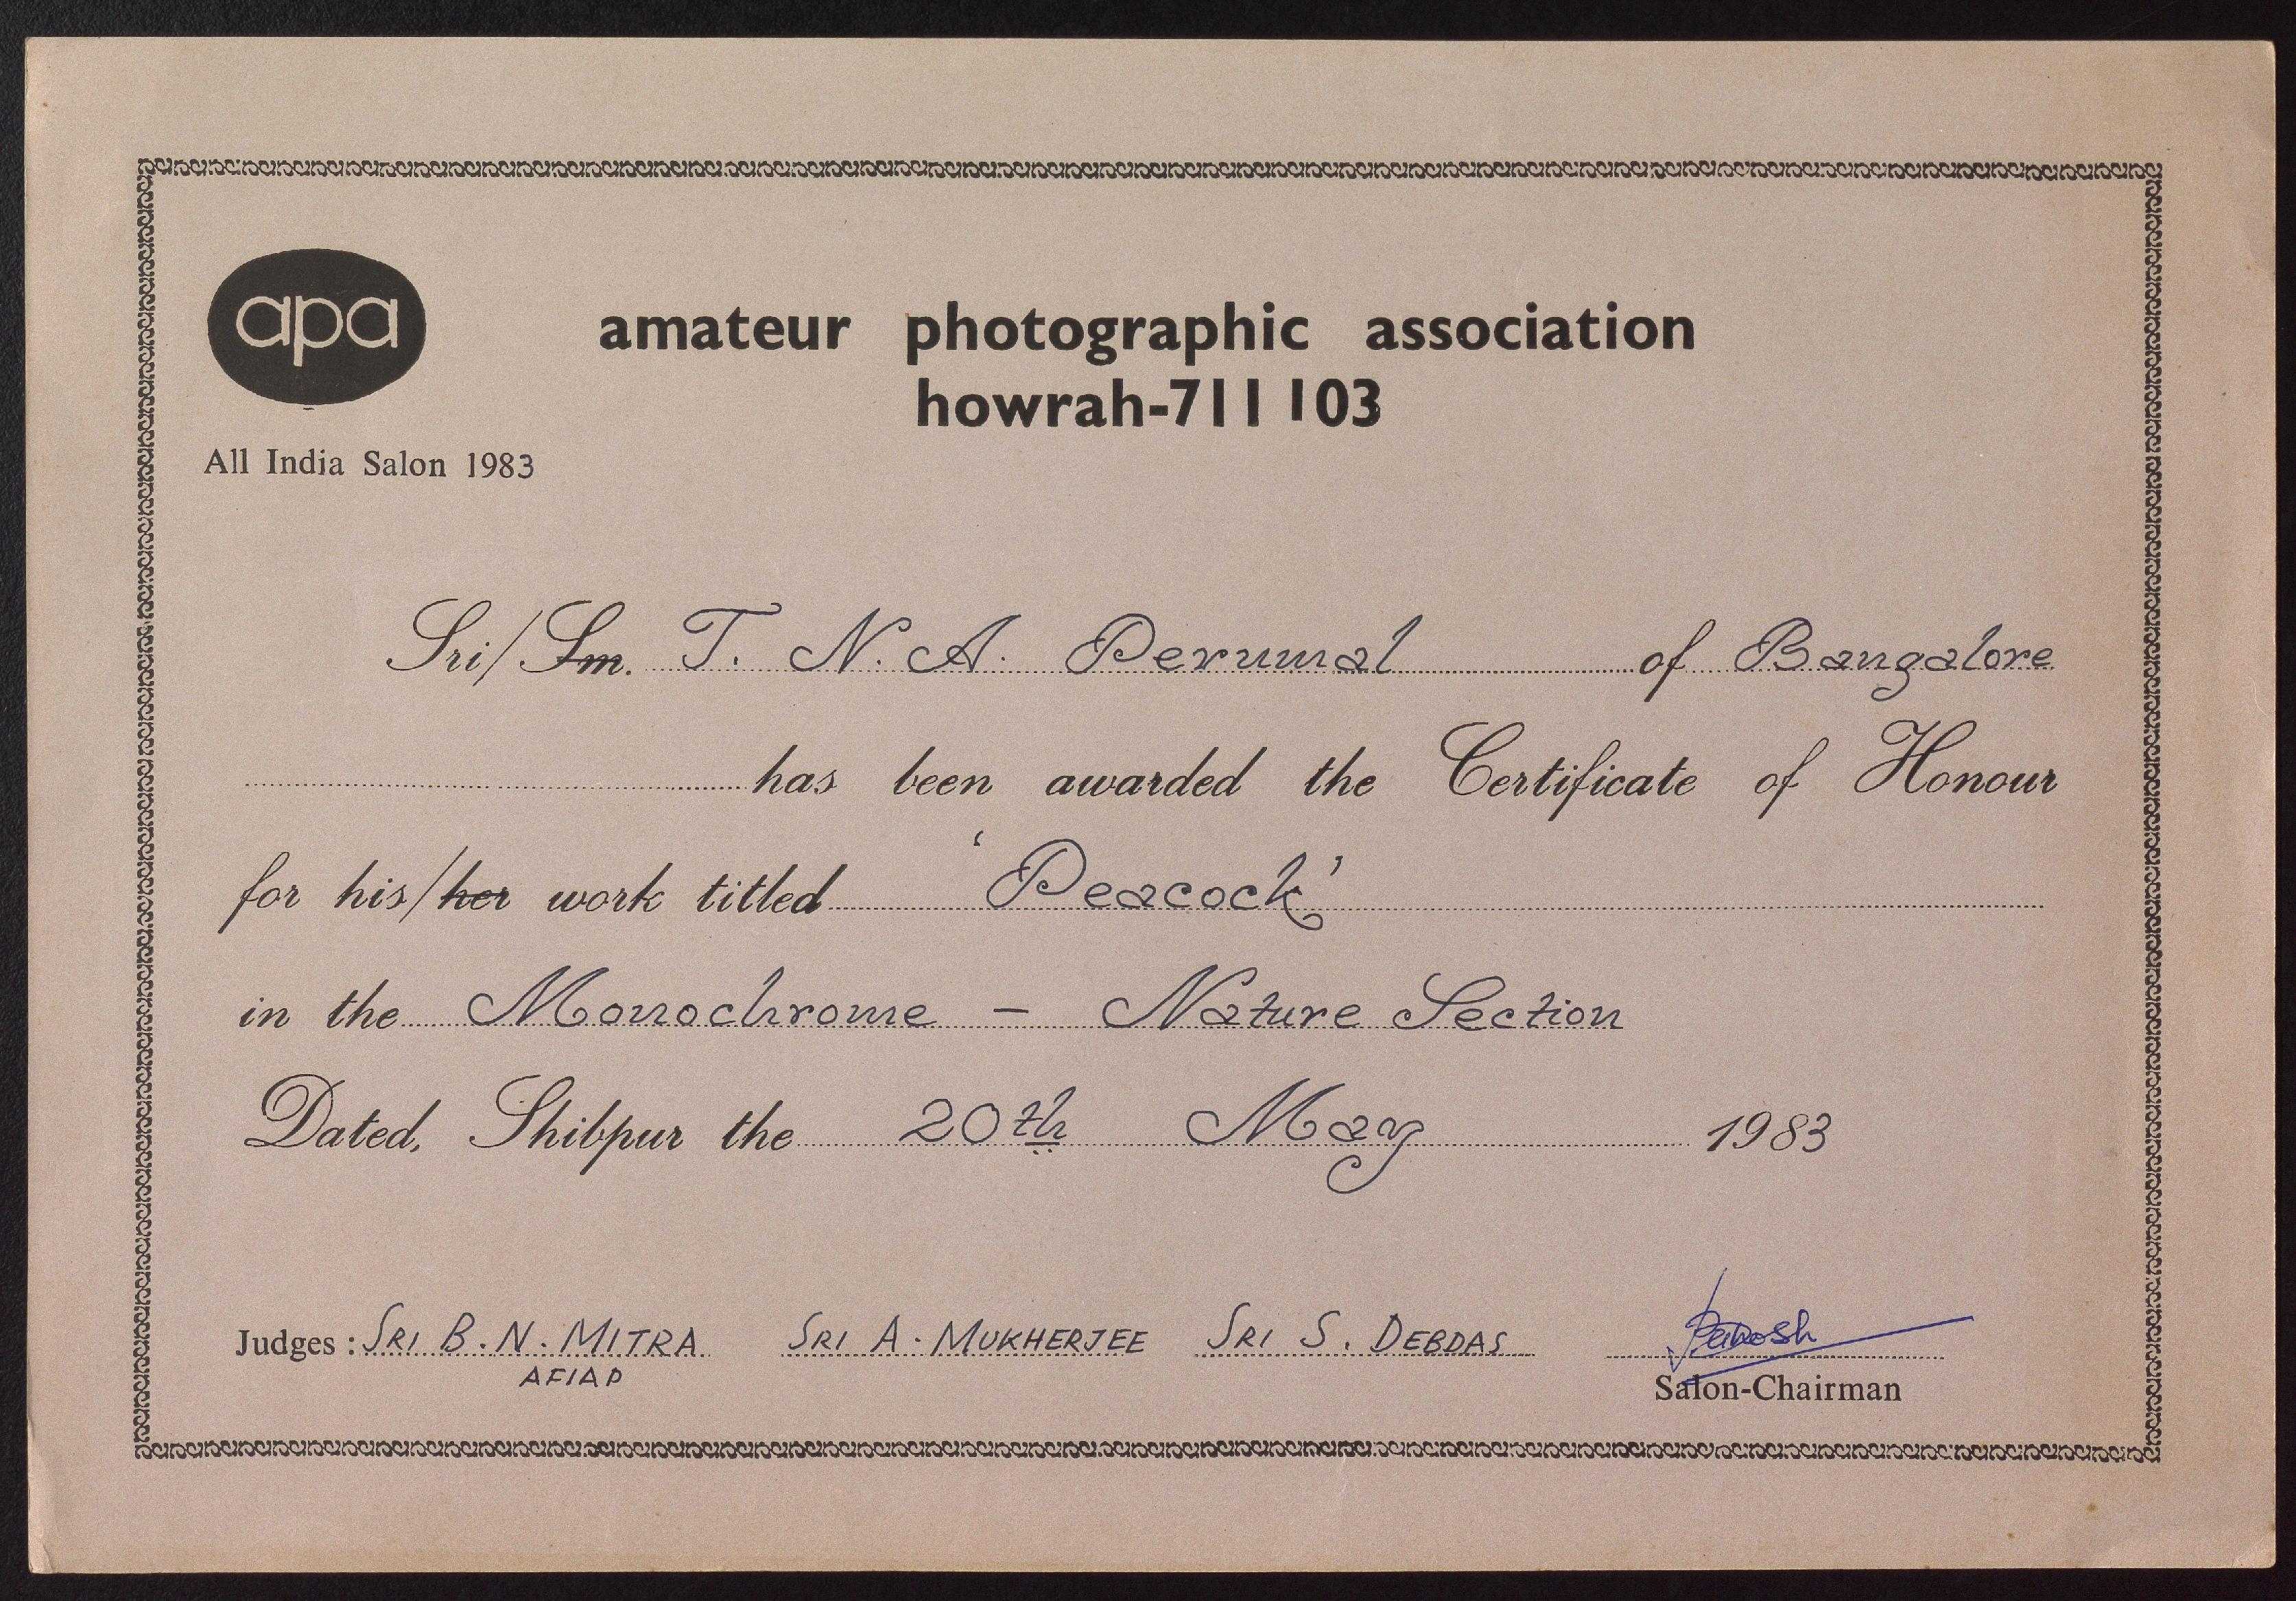 apa
amateur photographic association
howrah-711 103
All India Salon 1983
Sri/Sm. T. N. A. Perumal of Bangalore
has been awarded the Certificate of Honour
for his/her work titled 'Peacock'
in the Monochrome - Nature Section
Dated, Shibpur the 20th May 1983
Judges : SRI B. N. MITRA SRI A. MUKHERJEE SRI S. DEBDAS
AFIAP
Salon-Chairman